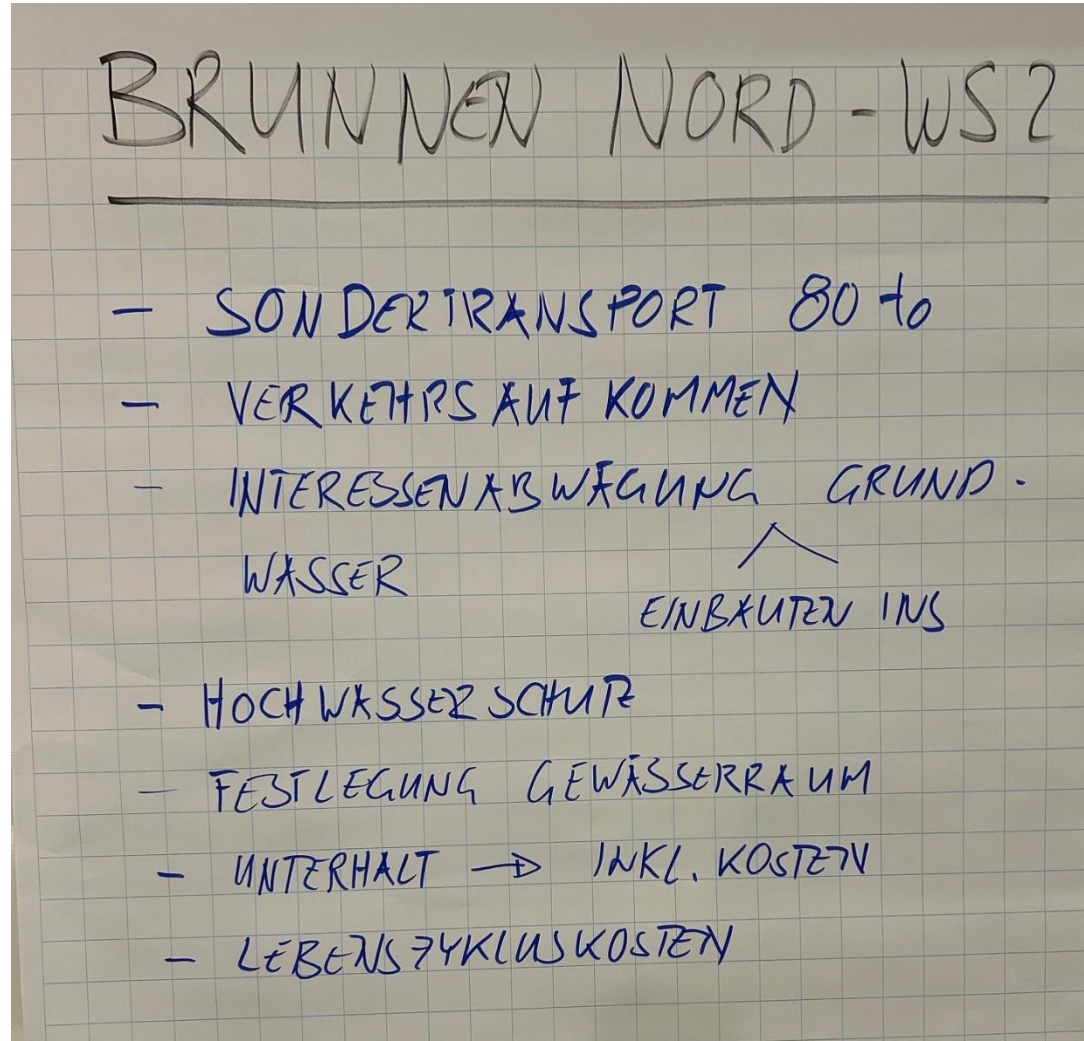 BRUNNEN NORD - WS2
- SONDERTRANSPORT 80 to
- VERKEHRSAUFKOMMEN
- INTERESSENABWÄGUNG GRUND-
WASSER
EINBAUTEN INS
- HOCHWASSERSCHUTZ
- FESTLEGUNG GEWÄSSERRAUM
- UNTERHALT → INKL. KOSTEN
- LEBENSZYKLUSKOSTEN